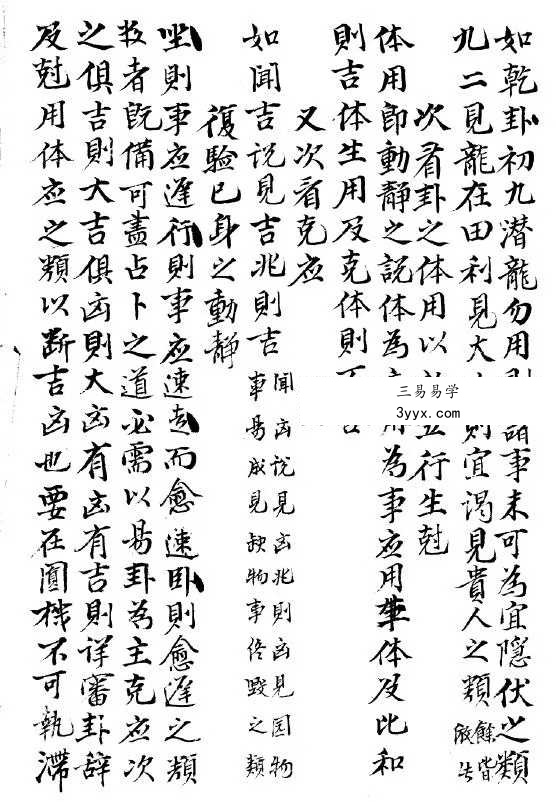 如乾卦初九潛龍勿用則諸事未可為宜隱伏之類
九二見龍在田利見大則宜謁見貴人之類餘皆倣此
次看卦之体用以五行生尅
体用即動静之説体為用為事应用体及比和
則吉体生用及克体則不吉
又次看克应
如聞吉説見吉兆則吉
聞凶説見凶兆則凶見圓物
事易成見缺物事終毀之類
復驗已身之動靜
坐則事应遲行則事应速走而愈速卧則愈遲之類
数者既備可盡占卜之道必需以易卦為主克应次
之俱吉則大吉俱凶則大凶有凶有吉則详審卦辞
及尅用体应之類以断吉凶也要在圓機不可執滯
三易易学
3yyx.com